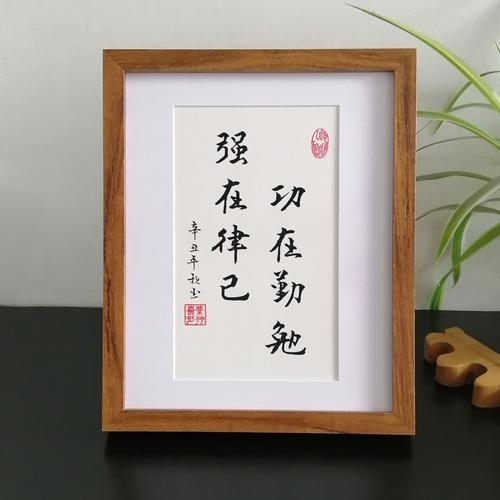 功在勤勉
强在律己
辛丑年秋书